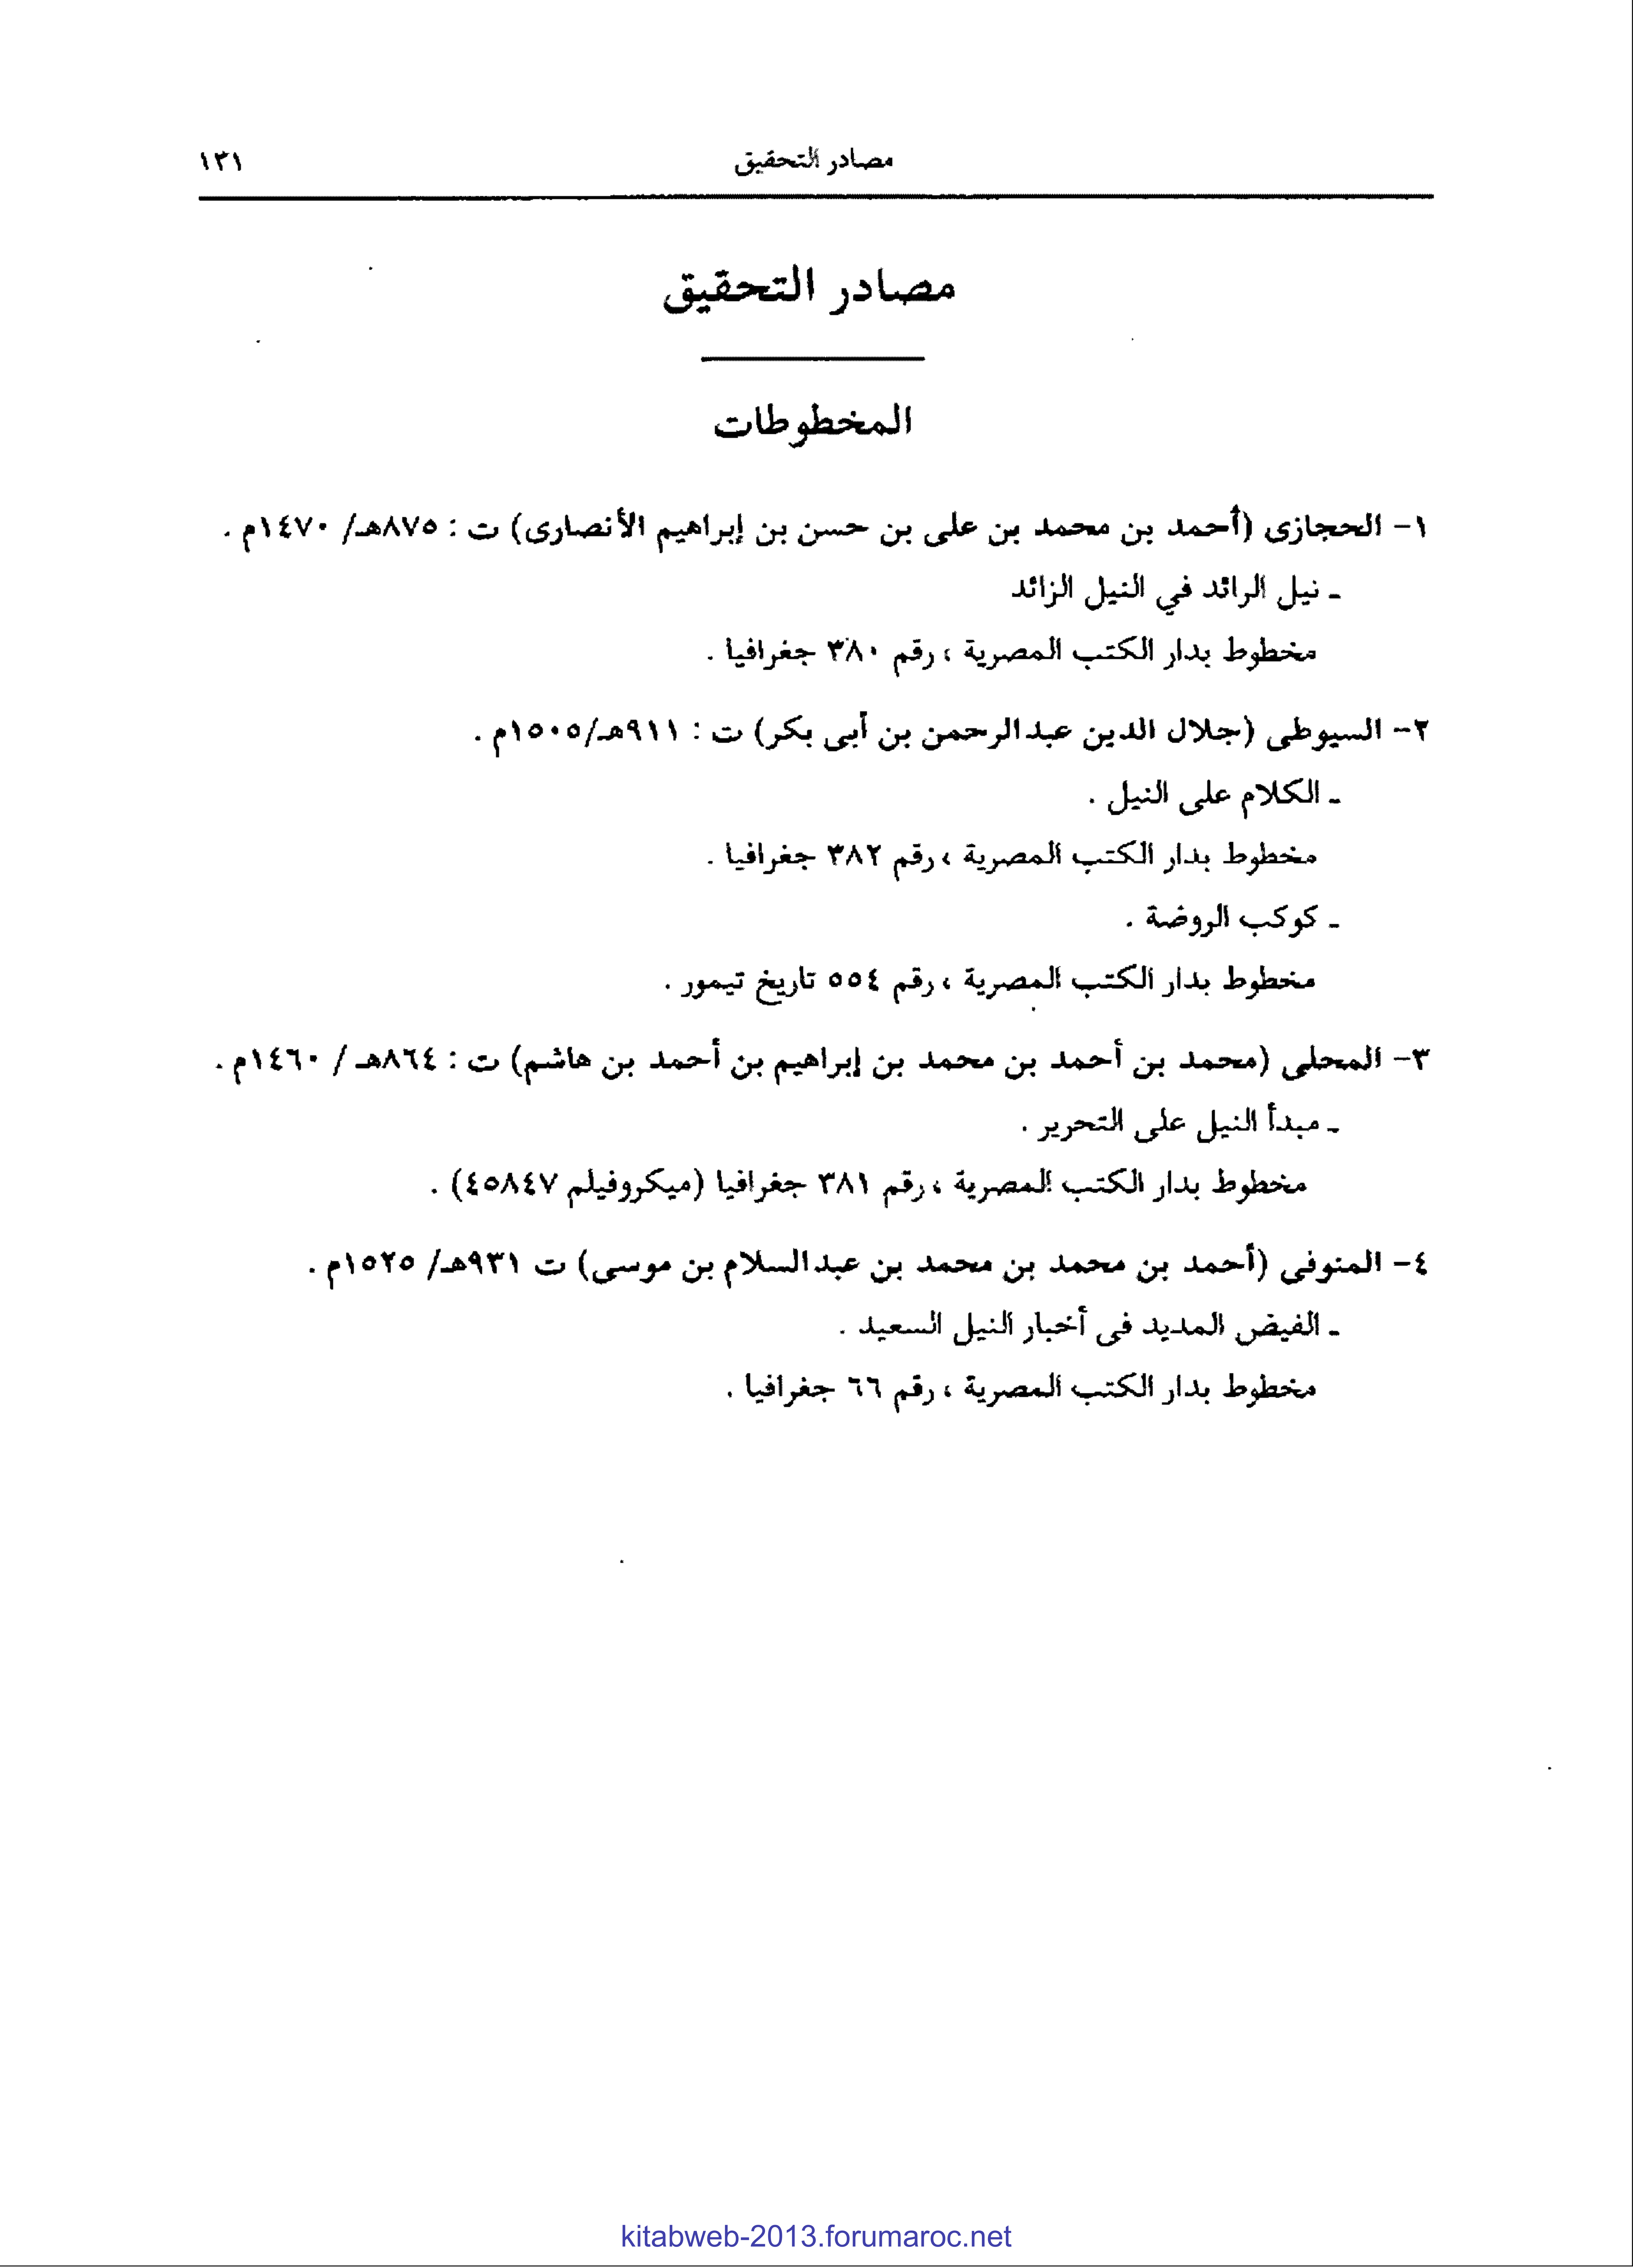 مصادر التحقيق ١٣١
مصادر التحقيق
المخطوطات
١- الحجازى (أحمد بن محمد بن على بن حسن بن إبراهيم الأنصارى) ت : ٨٧٥هـ/ ١٤٧٠م .
ـ نيل الرائد في النيل الزائد
مخطوط بدار الكتب المصرية ، رقم ٣٨٠ جغرافيا .
٢- السيوطى (جلال الدين عبدالرحمن بن أبى بكر) ت : ٩١١هـ/١٥٠٥م .
ـ الكلام على النيل .
مخطوط بدار الكتب المصرية ، رقم ٣٨٢ جغرافيا .
ـ كوكب الروضة .
مخطوط بدار الكتب المصرية ، رقم ٥٥٤ تاريخ تيمور .
٣- المحلى (محمد بن أحمد بن محمد بن إبراهيم بن أحمد بن هاشم) ت : ٨٦٤هـ / ١٤٦٠م .
ـ مبدأ النيل على التحرير .
مخطوط بدار الكتب المصرية ، رقم ٣٨١ جغرافيا (ميكروفيلم ٤٥٨٤٧) .
٤- المنوفى (أحمد بن محمد بن محمد بن عبدالسلام بن موسى) ت ٩٣١هـ/ ١٥٢٥م .
ـ الفيض المديد فى أخبار النيل السعيد .
مخطوط بدار الكتب المصرية ، رقم ٦٦ جغرافيا .
kitabweb-2013.forumaroc.net